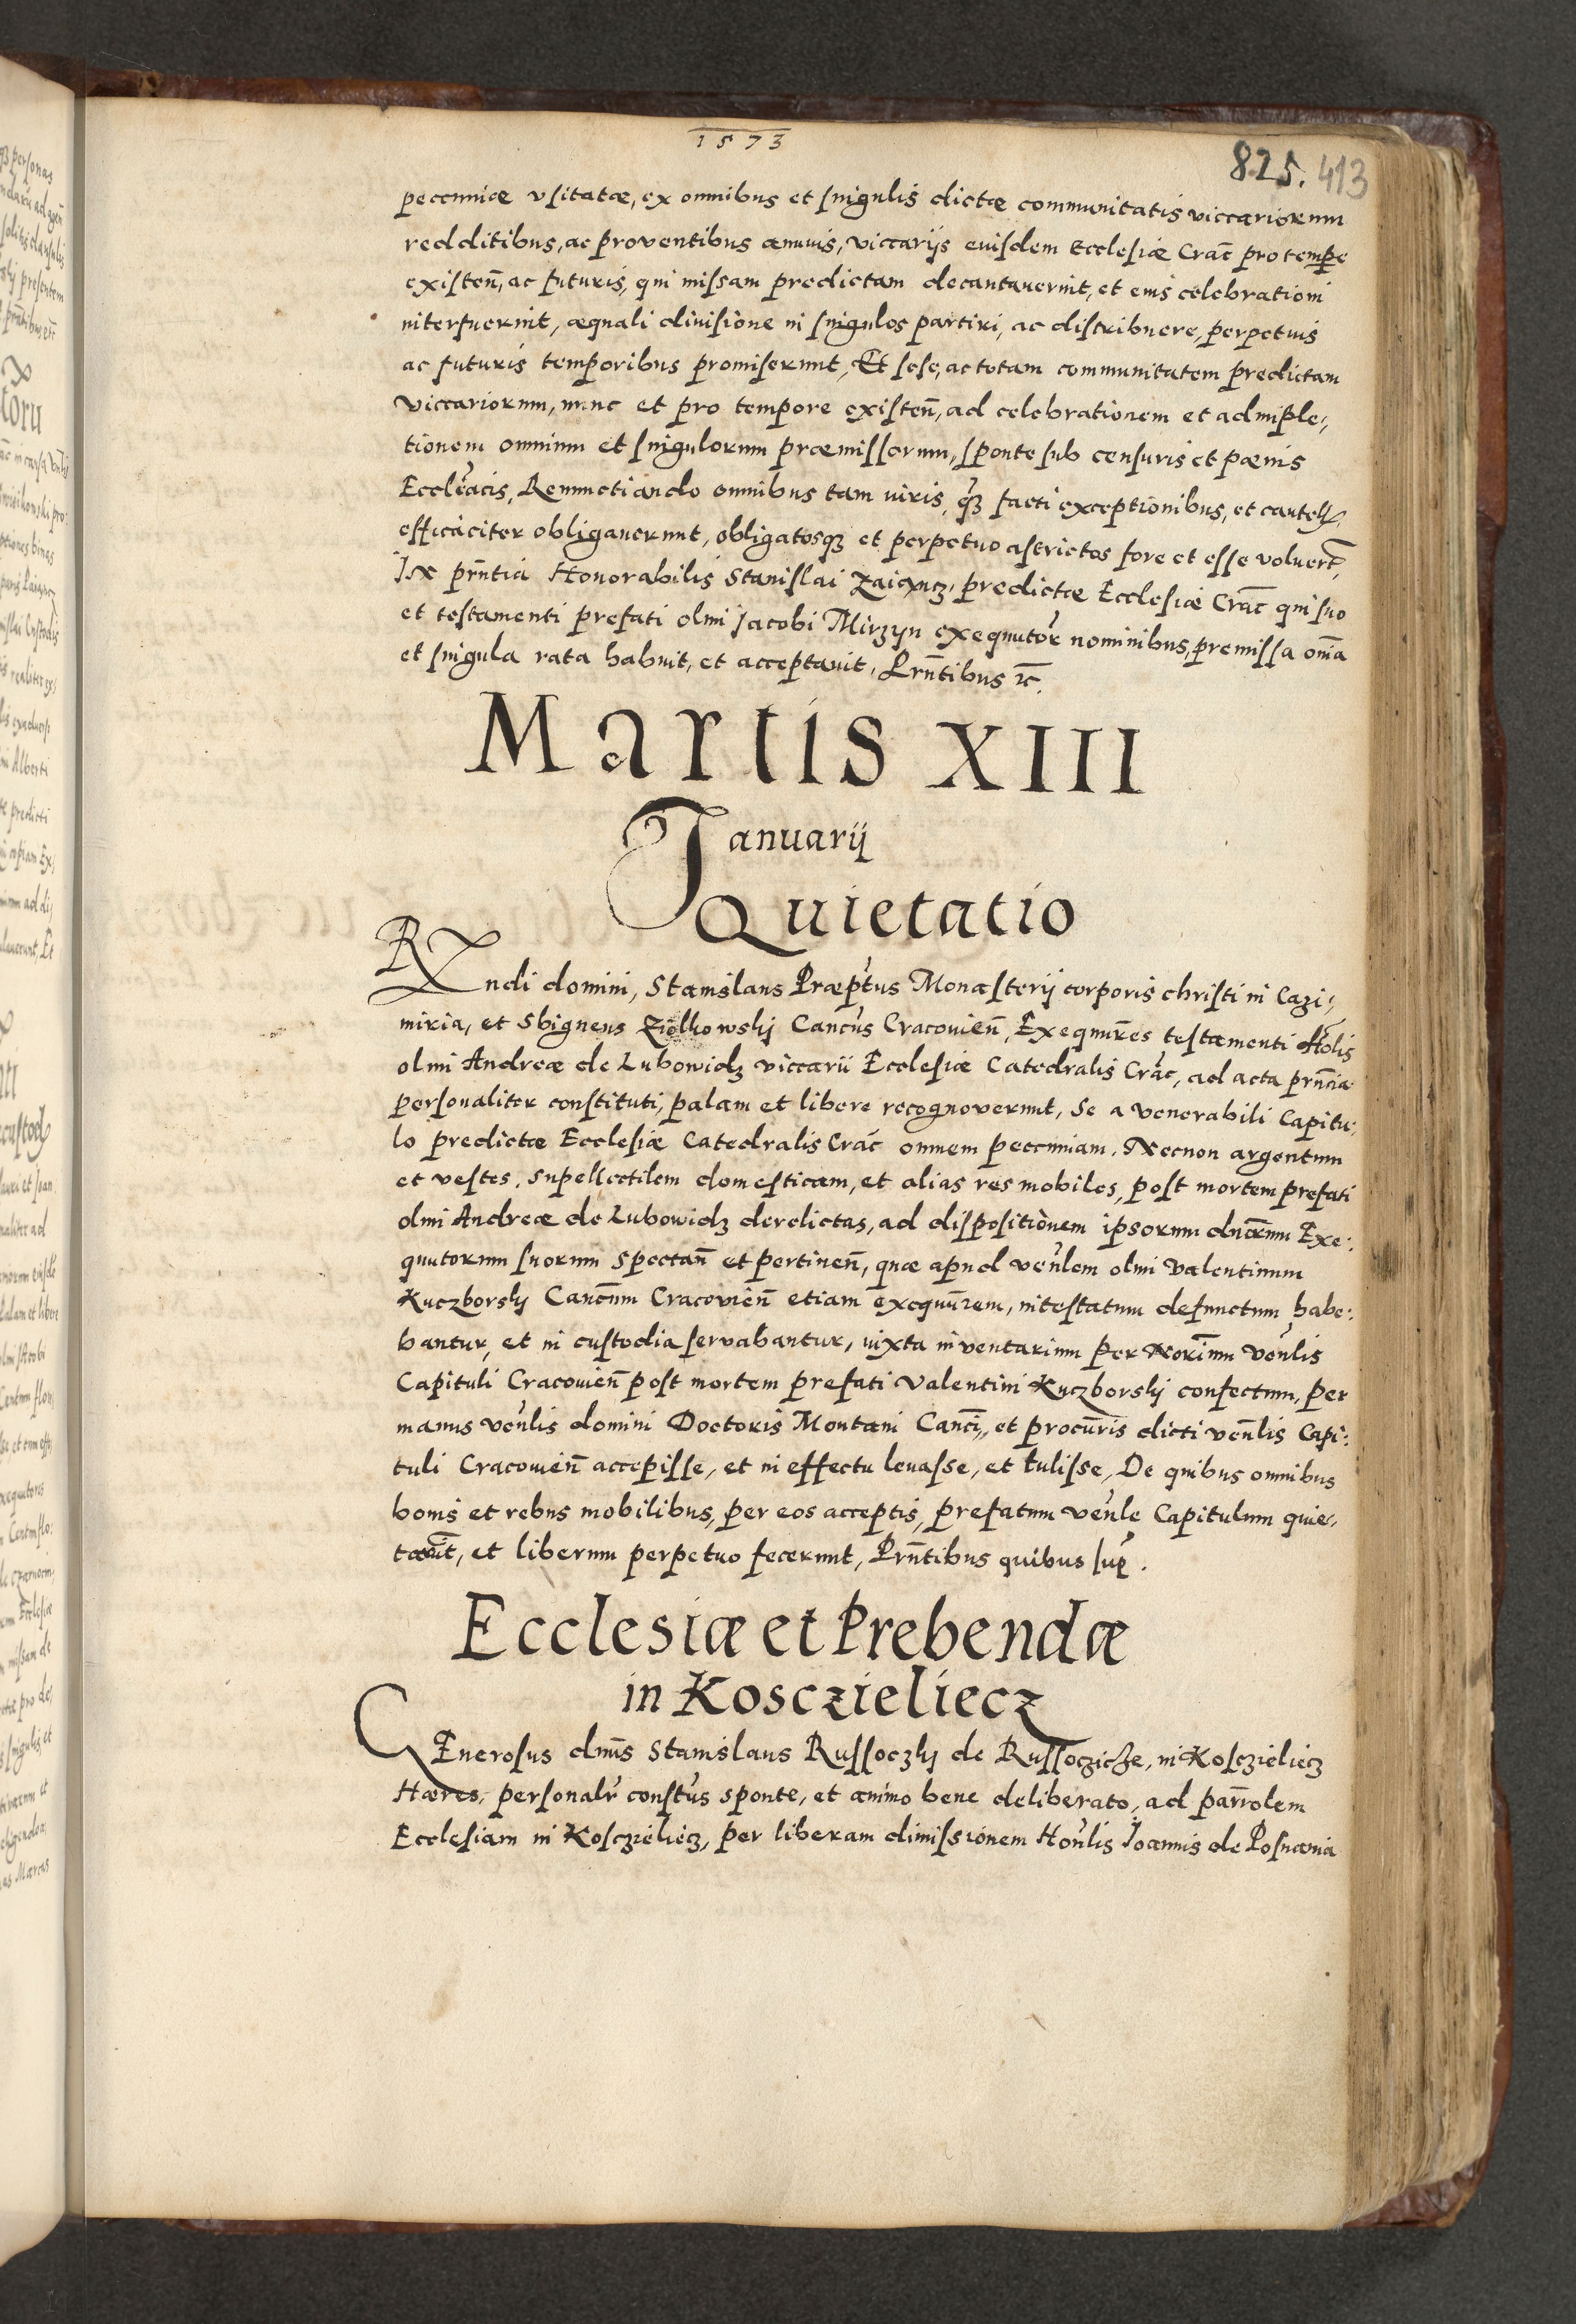 1573
825. 413
pecuniæ vsitatæ, ex omnibus et singulis dictæ communitatis viccariorum
redditibus, ac proventibus annuis, viccarijs euisdem Ecclesiæ Crac̄ pro tempe
existen̄, ac futuris, qui missam predictam decantauerint, et eius celebrationi
interfuerint, æquali diuisione in singulos partiri, ac distribuere, perpetuis
ac futuris temporibus promiserunt, Et sese, ac totam communitatem predictam
viccariorum, nunc et pro tempore existen̄, ad celebrationem et adimple,
tionem omnium et singulorum præmissorum, sponte sub censuris et pœnis
Eccleācis, Renunctiando omnibus tam iuris, q̄ȝ facti exceptionibus, et cautelis
efficaciter obligauerunt, obligatosqȝ et perpetuo astrictos fore et esse voluert̄,
In prn̄tia Honorabilis Stanislai Zaiącz, predictæ Ecclesiæ Crac̄ qui suo
et testamenti prefati olmi Jacobi Mirzyn exequutor̄ nominibus, premissa om̄ia
et singula rata habuit, et acceptauit, Prn̄tibus ɾc̄.
Martis XIII
Januarij
Quietatio
Rndi domini, Stanislaus Præpt̄us Monasterij corporis christi in Cazi,
miria, et Sbigneus Ziolkowskj Canc̄us Cracouien̄, Exequut̄res testamenti Ho̅lis
olmi Andreæ de Lubowidz viccarii Ecclesiæ Catedralis Crac̄, ad acta prn̄cia
personaliter constituti, palam et libere recognoverunt, Se a venerabili Capitu,
lo predictæ Ecclesiæ Catedralis Crac̄ omnem pecuniam, Necnon argentum
et vestes, supellectilem domesticam, et alias res mobiles, post mortem prefati
olmi Andreæ de Lubowidz derelictas, ad dispositionem ipsorum dnōrum Exe:
quutorum suorum spectan̄ et pertinen̄, quæ apud ven̄lem olmi Valentinum
Kuczborskj Canc̄um Cracouien̄ etiam exequūrem, intestatum defunctum habe:
bantur, et in custodia servabantur, iuxta inventarium per Norīum ven̄lis
Capituli Cracouien̄ post mortem prefati Valentini Kuczborskj confectum, per
manus ven̄lis domini Doctoris Montani Canc̄i, et procūris dicti ven̄lis Capi:
tuli Cracouien̄ accepisse, et in effectu leuasse, et tulisse, De quibus omnibus
bonis et rebus mobilibus, per eos acceptis, prefatum ven̄le Capitulum quie,
taut̄, et liberum perpetuo fecerunt, Prn̄tibus quibus sup̄.
Ecclesiæ et Prebendæ
in Kosczieliecz
GEnerosus dnūs Stanislaus Russoczkj de Russoczicze, in Kosczieliecz
Hæres, personalr̄ const̄us sponte, et animo bene deliberato, ad parr̄olem
Ecclesiam in Kosczieliecz, per liberam dimissionem Hon̄lis Joannis de Posnania